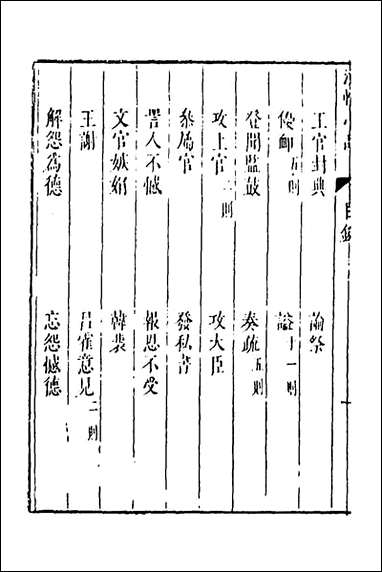 目錄
工官封典　諭祭
優卹五則　諡十一則
登聞監鼓　奏疏五則
攻上官二則　攻大臣
參屬官　發私書
詈人不憾　報恩不受
文官嫉媢　韓裴
王謝　呂霍意見二則
解怨為德　忘怨憾德